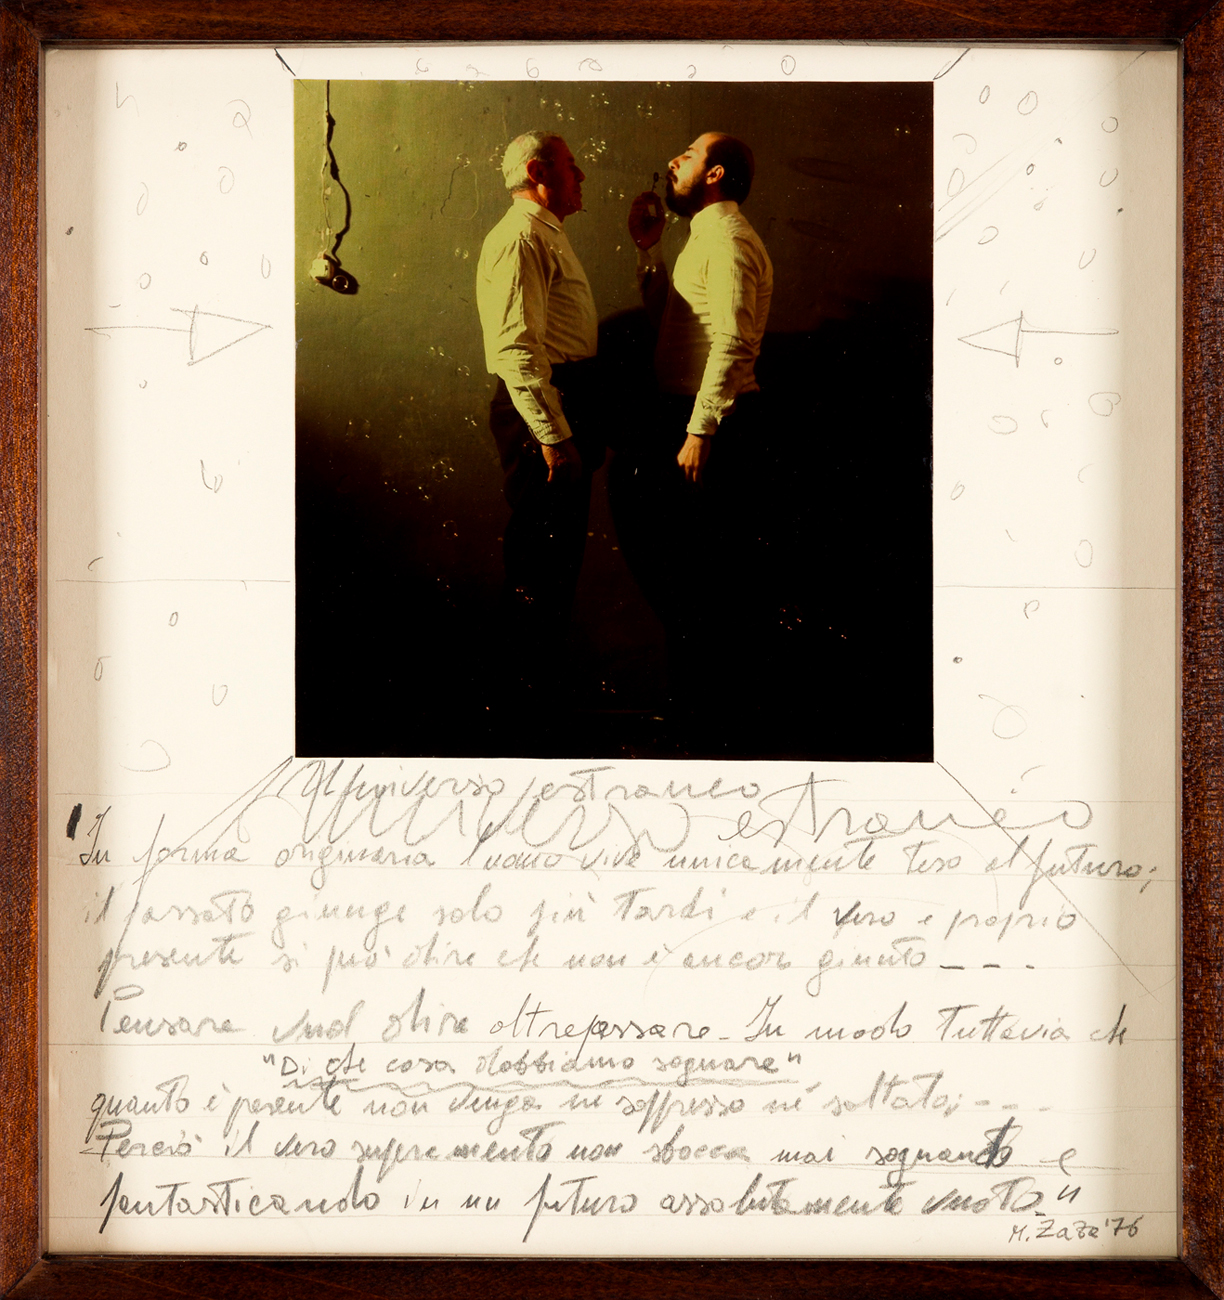 Universo estraneo
universo estraneo
In forma originaria l'uomo vive unicamente teso al futuro;
il passato giunge solo più tardi e il vero e proprio
presente si può dire che non è ancor giunto - - - -
Pensare vuol dire oltrepassare. In modo tuttavia che
"Di che cosa dobbiamo sognare"
quanto è presente non venga nè soppresso nè saltato; - - -
Perciò il vero superamento non sbocca mai sognando e
fantasticando in un futuro assolutamente vuoto."
M. Zaza '76